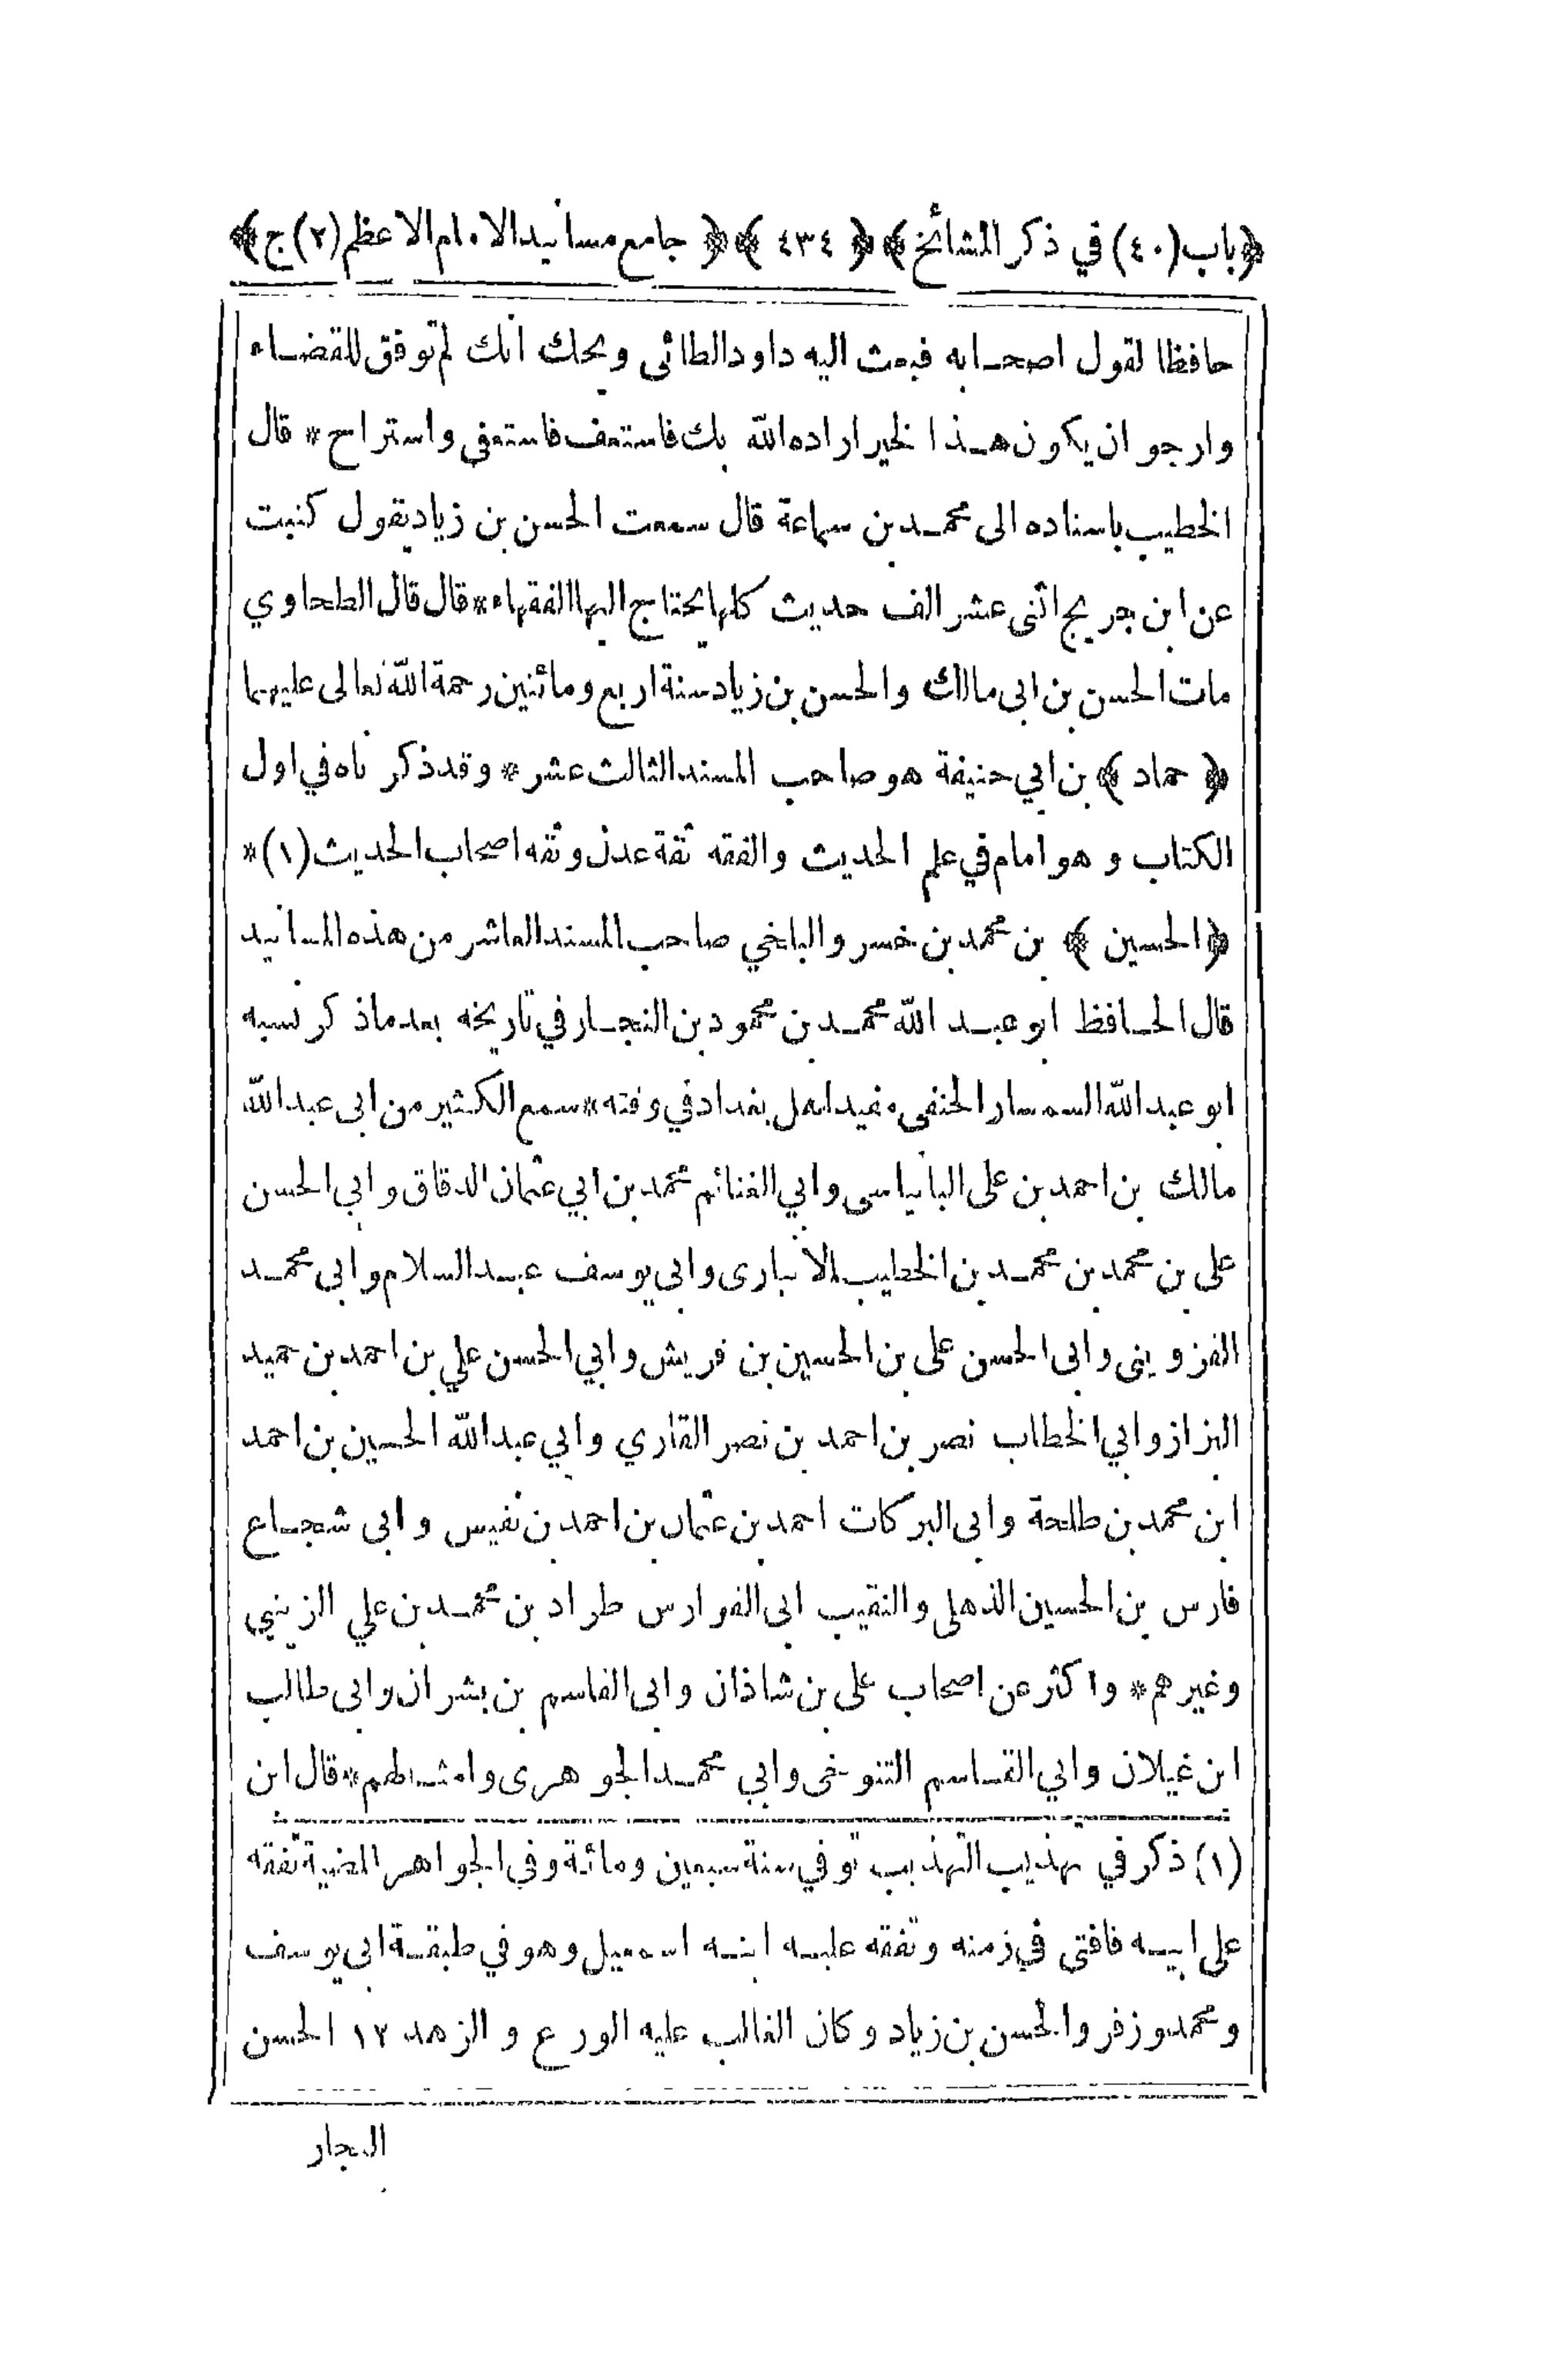 ﴿باب(٤٠) في ذكر المشائخ﴾ ﴿ ٤٣٤ ﴾ ﴿ جامع مسانيد الامام الاعظم (٢) ج﴾
حافظا لقول اصحابه فبعث اليه داود الطائى ويحك انك لم توفق للقضاء
وارجو ان يكون هذا لخير اراده الله بك فاستعف فاستعفى واستراح * قال
الخطيب باسناده الى محمد بن سماعة قال سمعت الحسن بن زياد يقول كتبت
عن ابن جريج اثنى عشر الف حديث كلها يحتاج اليها الفقهاء * قال قال الطحاوي
مات الحسن بن ابى مالك والحسن بن زياد سنة اربع ومائتين رحمة الله تعالى عليهما
﴿ حماد ﴾ بن ابي حنيفة هو صاحب المسند الثالث عشر * وقد ذكر ناه في اول
الكتاب و هو امام في علم الحديث والفقه ثقة عدل وثقه اصحاب الحديث (١) *
﴿ الحسين ﴾ بن محمد بن خسر والبلخي صاحب المسند العاشر من هذه المسانيد
قال الحافظ ابو عبد الله محمد بن محمود بن النجار في تاريخه بعد ما ذكر نسبه
ابو عبد الله السمسار الحنفى مفيد اهل بغداد في وقته * سمع الكثير من ابى عبد الله
مالك بن احمد بن على البانياسى وابي الغنائم محمد بن ابي عثمان الدقاق وابي الحسن
على بن محمد بن محمد بن الخطيب الانبارى وابى يوسف عبد السلام وابى محمد
القزوينى وابى الحسن على بن الحسين بن قريش وابي الحسن علي بن احمد بن حميد
البزاز وابي الخطاب نصر بن احمد بن نصر القاري وابي عبد الله الحسين بن احمد
ابن محمد بن طلحة وابى البركات احمد بن عثمان بن احمد بن نفيس وابى شجاع
فارس بن الحسين الذهلى والنقيب ابى الفوارس طراد بن محمد بن علي الزينبي
وغيرهم * واكثر عن اصحاب على بن شاذان وابى القاسم بن بشران وابى طالب
ابن غيلان وابي القاسم التنوخى وابي محمد الجوهرى وامثالهم * قال ابن
(١) ذكر في تهذيب التهذيب توفي سنة سبعين ومائة وفي الجواهر المضية تفقه
على ابيه فافتى في زمنه وتفقه عليه ابنه اسمعيل وهو في طبقة ابى يوسف
ومحمد وزفر والحسن بن زياد وكان الغالب عليه الورع و الزهد ١٢ الحسن
النجار